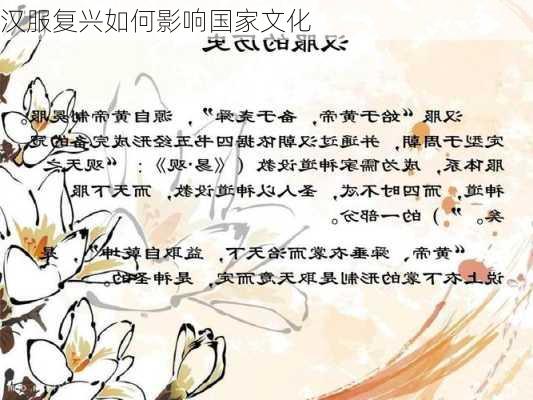 汉服复兴如何影响国家文化
汉服的历史
汉服“始于黄帝，备于尧舜”，源自黄帝制冕服。
定型于周朝，并通过汉朝依据四书五经形成完备的冠
服体系，成为儒家神道设教（《易·观》：“观天之
神道，而四时不忒，圣人以神道设教，而天下服
矣。”）的一部分。
“黄帝、尧舜垂衣裳而治天下，益取自乾坤”，是
说上衣下裳的形制是取天意而定，是神圣的。